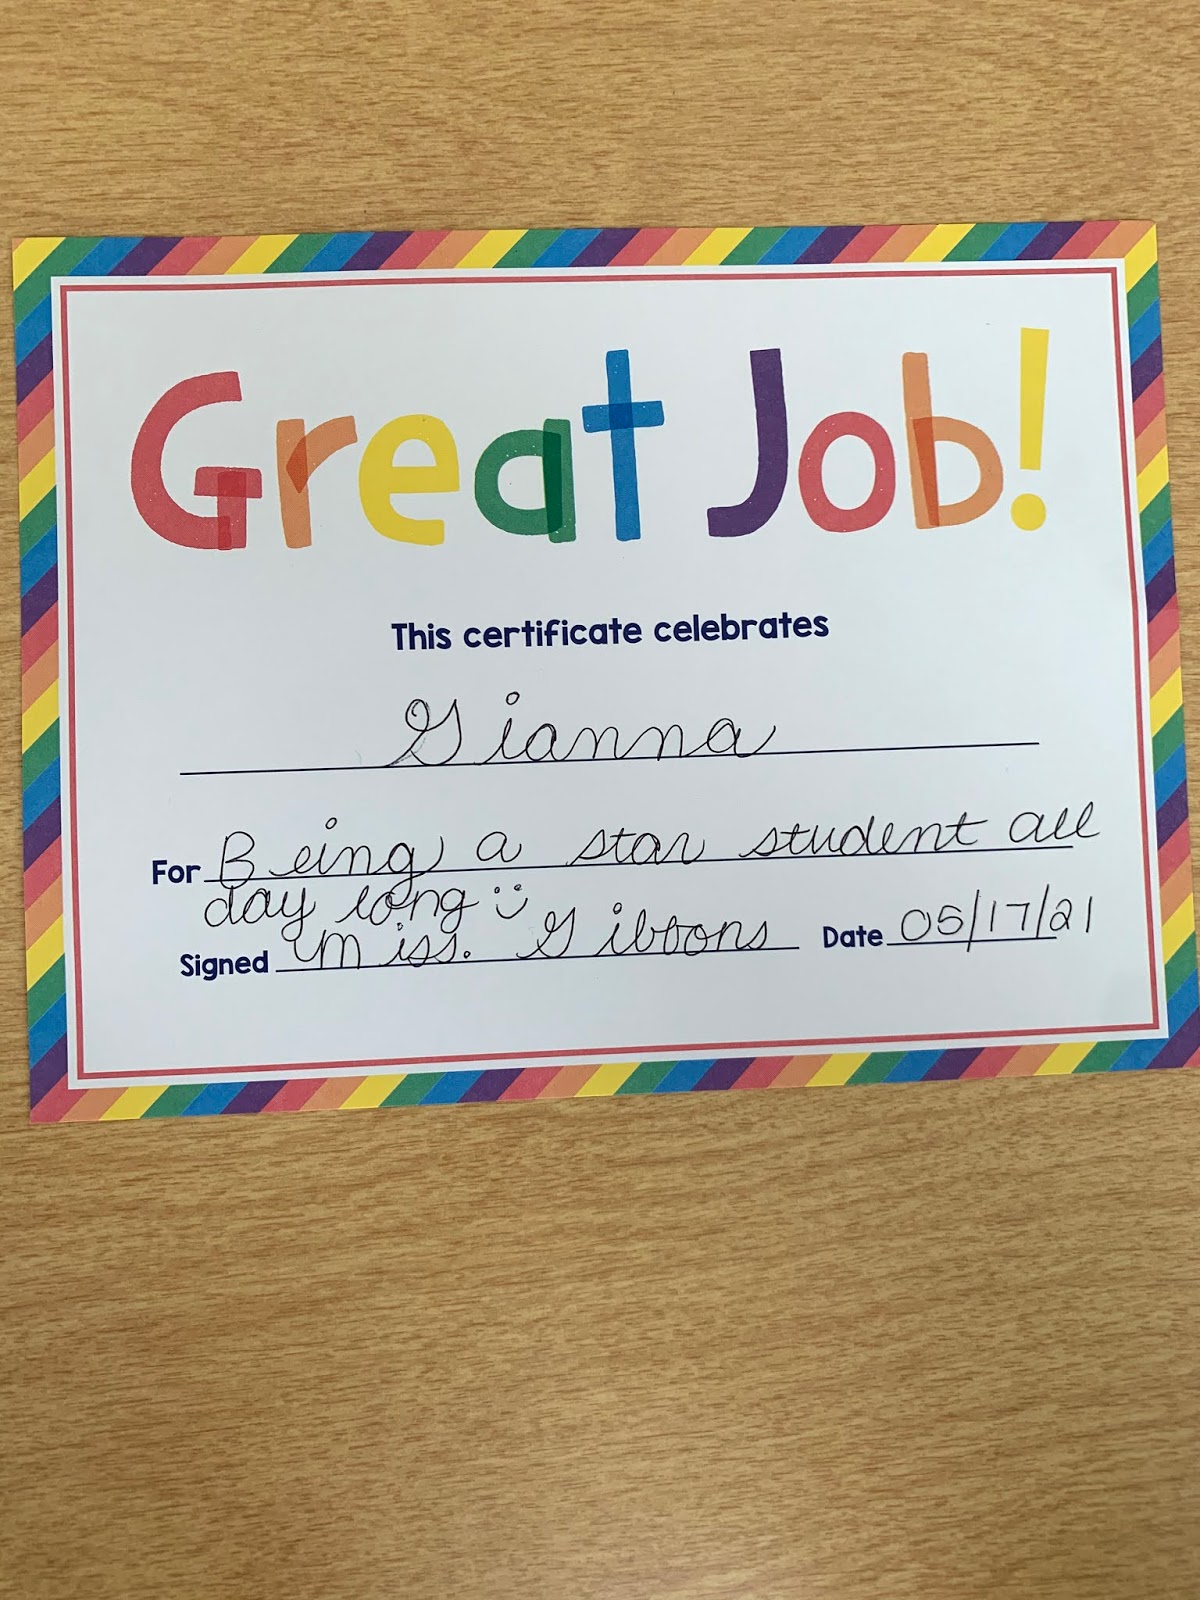 Great Job!
This certificate celebrates
Gianna
For Being a star student all
day long
Signed Miss. Gibbons Date 05/17/21